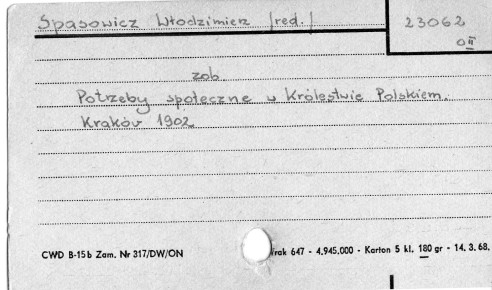 Spasowicz Włodzimierz [red.]
23062
O II
zob.
Potrzeby społeczne w Królestwie Polskiem.
Kraków 1902
CWD B-15b Zam. Nr 317/DW/ON
647 - 4.945.000 - Karton 5 kl. 180 gr - 14. 3. 68.